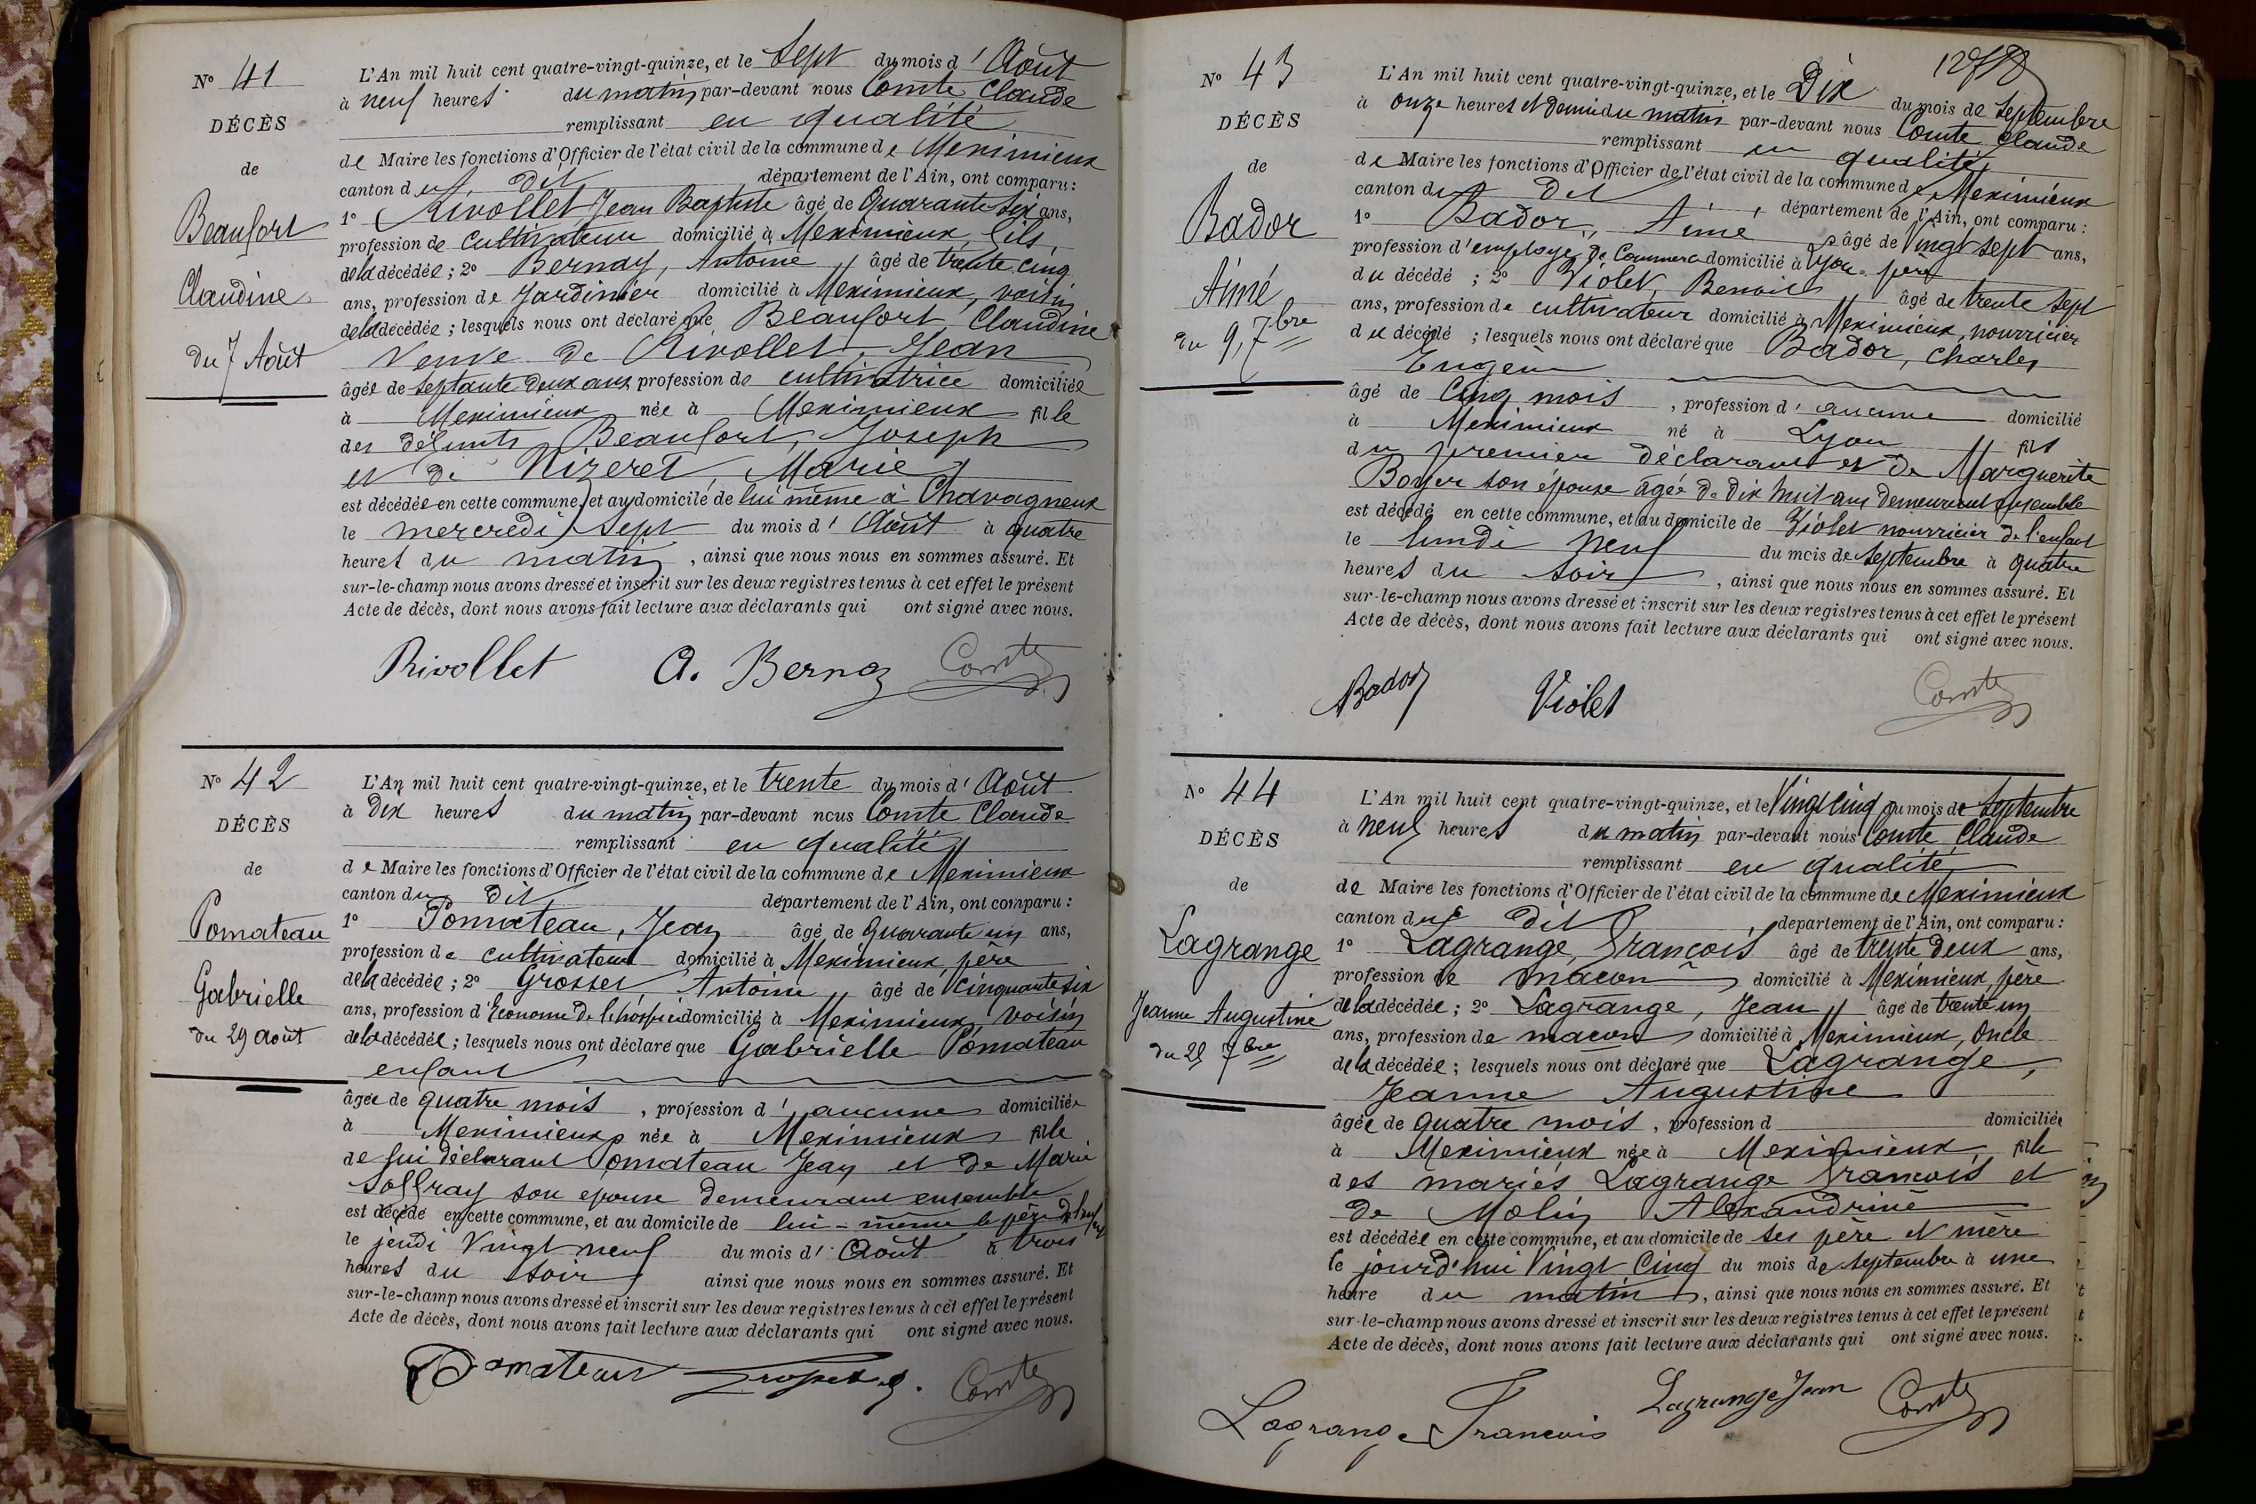 N° 41
DÉCÈS
de
Beaufort
Claudine
du 7 Août
L'An mil huit cent quatre-vingt-quinze, et le Sept du mois d'Août
à neuf heures du matin par-devant nous Comte Claude
remplissant en qualité
de Maire les fonctions d'Officier de l'état civil de la commune de Meximieux
canton du dit département de l'Ain, ont comparu :
1° Rivollet Jean Baptiste âgé de Quarante six ans,
profession de cultivateur domicilié à Meximieux, fils
de la décédée ; 2° Bernay, Antoine âgé de trente cinq
ans, profession de Jardinier domicilié à Meximieux, voisin
de la décédée ; lesquels nous ont déclaré que Beaufort, Claudine
Veuve de Rivollet, Jean
âgée de septante deux ans profession de cultivatrice domiciliée
à Meximieux née à Meximieux fille
des défunts Beaufort, Joseph
et de Nizeret Marie
est décédée en cette commune, et au domicile de lui même à Chavagneux
le mercredi sept du mois d'Août à quatre
heures du matin, ainsi que nous nous en sommes assuré. Et
sur-le-champ nous avons dressé et inscrit sur les deux registres tenus à cet effet le présent
Acte de décès, dont nous avons fait lecture aux déclarants qui ont signé avec nous.
Rivollet A. Bernay Comte
N° 42
DÉCÈS
de
Pomateau
Gabrielle
du 29 août
L'An mil huit cent quatre-vingt-quinze, et le trente du mois d'Août
à dix heures du matin par-devant nous Comte Claude
remplissant en qualité
de Maire les fonctions d'Officier de l'état civil de la commune de Meximieux
canton du dit département de l'Ain, ont comparu :
1° Pomateau, Jean âgé de Quarante un ans,
profession de cultivateur domicilié à Meximieux, père
de la décédée ; 2° Grosset Antoine âgé de cinquante six
ans, profession d'Econome de l'hospice domicilié à Meximieux, voisin
de la décédée ; lesquels nous ont déclaré que Gabrielle Pomateau
enfant
âgée de quatre mois, profession d'aucune domiciliée
à Meximieux née à Meximieux fille
de lui déclarant Pomateau Jean et de Marie
Soffray son epouse demeurant ensemble
est décédé en cette commune, et au domicile de lui-même le père de l'enfant
le jeudi Vingt neuf du mois d'Août à trois
heures du soir ainsi que nous nous en sommes assuré. Et
sur-le-champ nous avons dressé et inscrit sur les deux registres tenus à cet effet le présent
Acte de décès, dont nous avons fait lecture aux déclarants qui ont signé avec nous.
Pomateau Grosset Comte
N° 43
DÉCÈS
de
Bador
Aimé
du 9, 7bre
L'An mil huit cent quatre-vingt-quinze, et le Dix du mois de Septembre
à onze heures et demie du matin par-devant nous Comte Claude
remplissant en qualité
de Maire les fonctions d'Officier de l'état civil de la commune de Meximieux
canton du dit, département de l'Ain, ont comparu :
1° Bador, Aimé âgé de Vingt sept ans,
profession d'employé de Commerce domicilié à Lyon père
du décédé ; 2° Violet, Benoit âgé de trente sept
ans, profession de cultivateur domicilié à Meximieux, nourricier
du décédé ; lesquels nous ont déclaré que Bador, Charles
Eugène
âgé de Cinq mois, profession d'aucune domicilié
à Meximieux né à Lyon fils
du premier déclarant et de Marguerite
Boyer son épouse âgée de dix huit ans demeurant ensemble
est décédé en cette commune, et au domicile de Violet nourricier de l'enfant
le lundi neuf du mois de septembre à quatre
heures du soir, ainsi que nous nous en sommes assuré. Et
sur-le-champ nous avons dressé et inscrit sur les deux registres tenus à cet effet le présent
Acte de décès, dont nous avons fait lecture aux déclarants qui ont signé avec nous.
Bador Violet Comte
N° 44
DÉCÈS
de
Lagrange
Jeanne Augustine
du 25 7bre
L'An mil huit cent quatre-vingt-quinze, et le Vingt Cinq du mois de Septembre
à neuf heures du matin par-devant nous Comte Claude
remplissant en qualité
de Maire les fonctions d'Officier de l'état civil de la commune de Meximieux
canton du dit département de l'Ain, ont comparu :
1° Lagrange, François âgé de trente deux ans,
profession de maçon domicilié à Meximieux, père
de la décédée ; 2° Lagrange, Jean âgé de trente un
ans, profession de maçon domicilié à Meximieux, Oncle
de la décédée ; lesquels nous ont déclaré que Lagrange,
Jeanne Augustine
âgée de quatre mois, profession d domiciliée
à Meximieux née à Meximieux, fille
des mariés Lagrange François et
de Molin Alexandrine
est décédée en cette commune, et au domicile de ses père et mère
le jourd'hui Vingt Cinq du mois de septembre à une
heure du matin, ainsi que nous nous en sommes assuré. Et
sur-le-champ nous avons dressé et inscrit sur les deux registres tenus à cet effet le présent
Acte de décès, dont nous avons fait lecture aux déclarants qui ont signé avec nous.
Lagrange Francois Lagrange Jean Comte